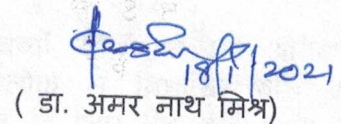 18/1/2021
( डा. अमर नाथ मिश्र)